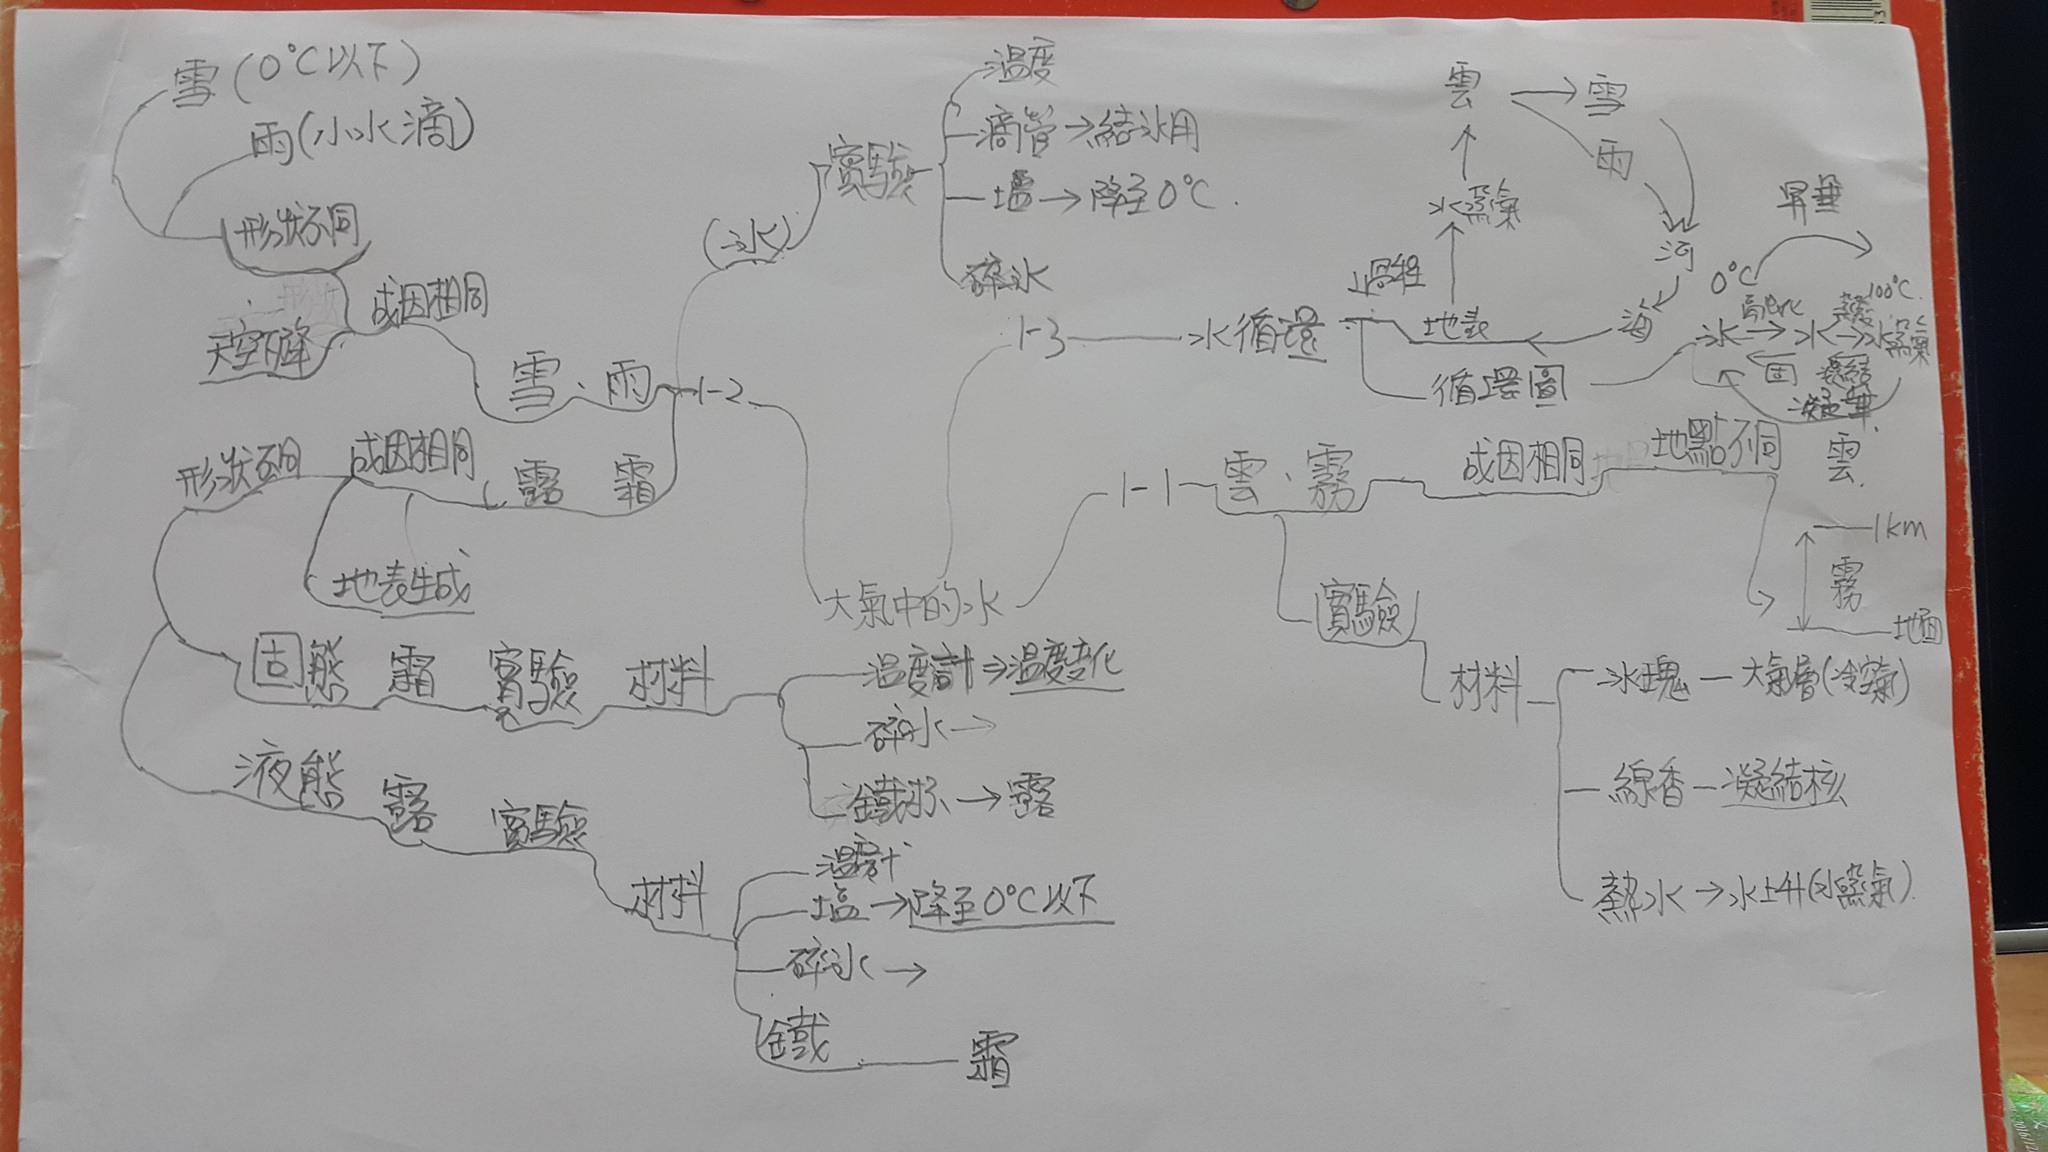 大氣中的水
1-1
雲、霧
成因相同
地點不同
雲
1km
霧
地面
實驗
材料
冰塊 — 大氣層(冷空氣)
線香 — 凝結核
熱水 → 水上升(水蒸氣)
1-2
(冰)
實驗
溫度
滴管 → 結冰用
塩 → 降至0°C
碎冰
雪、雨
成因相同
天空下降
形狀不同
雪(0°C以下)
雨(小水滴)
露 霜
成因相同
地表生成
形狀不同
固態 霜 實驗 材料
溫度計 ⇒ 溫度变化
碎冰 →
鐵 → 露
液態 露 實驗
材料
溫度計
塩 → 降至0°C以下
碎冰 →
鐵 — 霜
1-3
水循環
過程
地表
水蒸氣
雲 → 雪
雨
河
海
循環圖
昇華
0°C
100°C
冰 → 水 → 水蒸氣
凝結
凝華